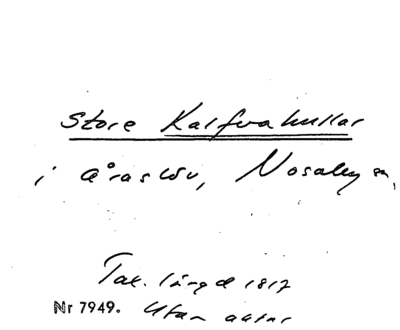 Store Kalfvahullar
i Åraslöv, Nosaby sn,
Tax. längd 1817
Nr 7949. Utan anm